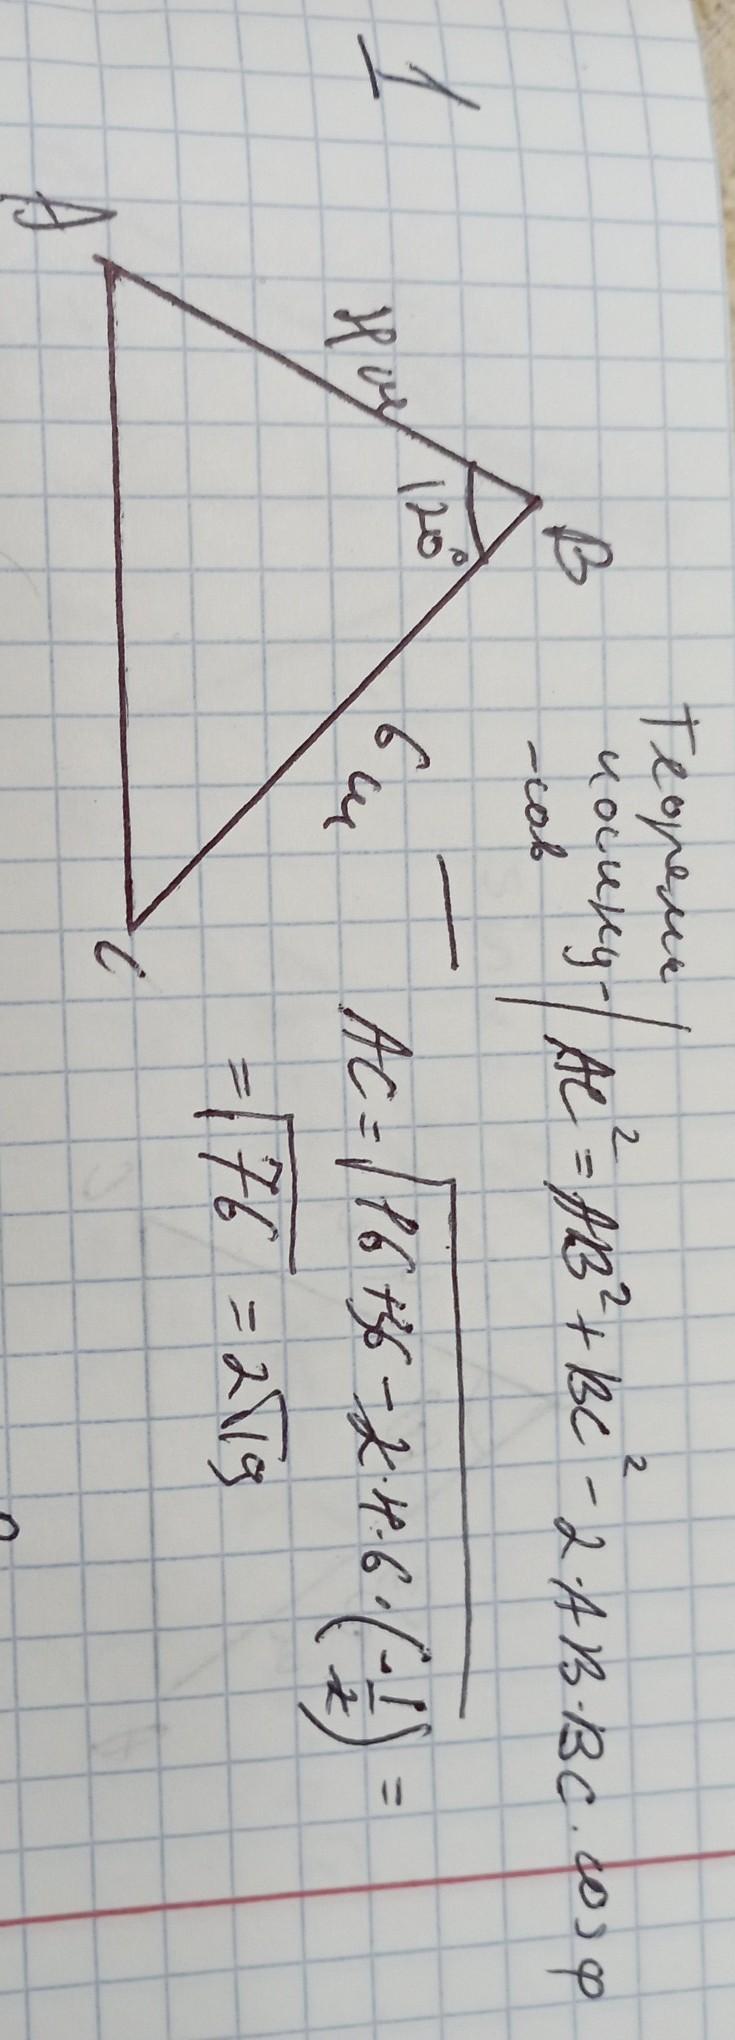 1
B
120°
4 см
6 см
A
C
Теорема
косину-
-сов
AC² = AB² + BC² - 2·AB·BC·cos φ
AC = √16+36-2·4·6·(-1/2) =
= √76 = 2√19